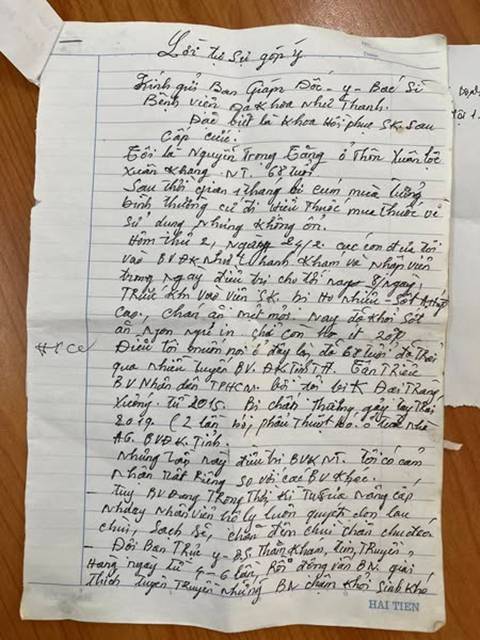 Lời tự sự góp ý
Kính gửi Ban Giám Đốc - y - Bác Sĩ
Bệnh viện Đa Khoa Như Thanh.
Đặc biệt là Khoa Hồi phục SK. Sau
Cấp cứu.
Tôi là Nguyễn Trọng Tằng ở Thôn Xuân Lộc
Xuân Khang - NT. 68 tuổi
Sau thời gian 1 tháng bị cúm mùa tưởng
bình thường cứ đi tiêu thuốc mua thuốc về
sử dụng nhưng không ổn.
Hôm thứ 2, Ngày 24/2. các con đưa tôi
vào BVĐK Như Thanh Khám và Nhập viện
trong ngày điều trị cho tới nay 8 ngày,
Trước khi vào viện SK. bị Ho nhiều - Sốt
cao, chán ăn mệt mỏi Nay đã khỏi sốt
ăn ngon ngủ chỉ còn Ho ít
Điều tôi muốn nói ở đây là đã 68 tuổi đã trải
qua nhiều tuyến BV. ĐK Tỉnh T.H. Tân Triều
BV Nhân dân TPHCM. bởi tôi bị K Đại Tràng
xuống từ 2015. Bị chấn thương gãy tay trái
2019. (2 lần phẫu thuật
BVĐK. Tỉnh.
Nhưng lần này điều trị BVĐK NT. tôi có cảm
Nhận rất Riêng so với các BV Khác.
- tuy BV Đang Trong Thời Kì Tu sửa Nâng cấp
Nhưng Nhân viên hộ lý luôn quyét dọn lau
chùi, Sạch sẽ, chăn đệm chu đáo
- Đội Ban Thức y - BS. Thăm Khám, tiêm, Truyền,
Hàng ngày từ 4 - 6 lần, Rồi động vân BN. giải
thích tuyên truyền Những BN chậm Khỏi Sinh Khó
HAI TIEN